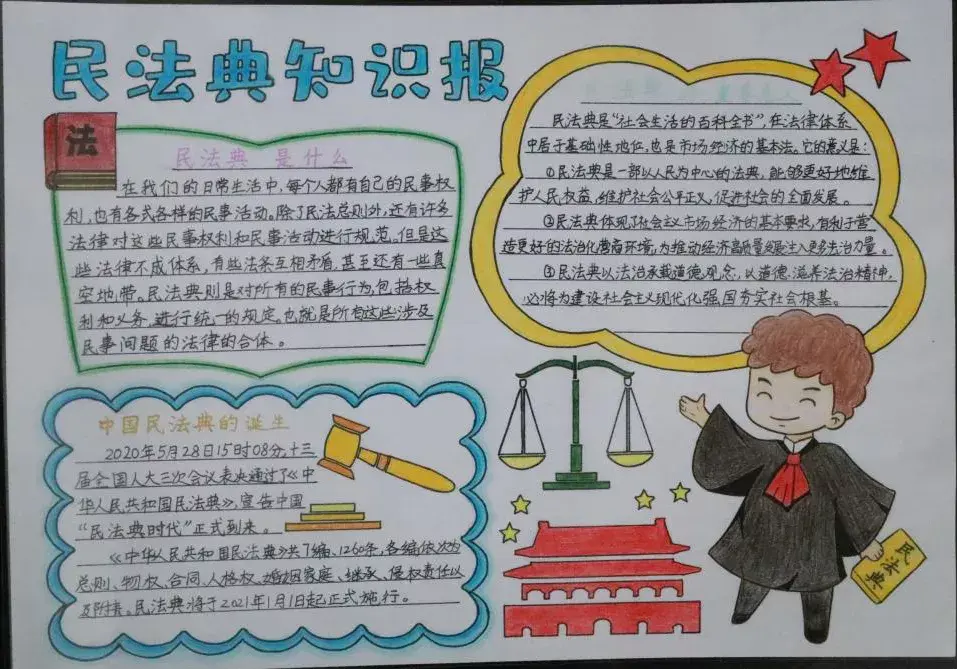 民法典知识报
法
民法典 是什么
在我们的日常生活中，每个人都有自己的民事权
利，也有各式各样的民事活动。除了民法总则外，还有许多
法律对这些民事权利和民事活动进行规范。但是这
些法律不成体系，有些法条互相矛盾，甚至还有一些真
空地带。民法典则是对所有的民事行为，包括权
利和义务，进行统一的规定。也就是所有这些涉及
民事问题的法律的合体。
民法典是“社会生活的百科全书”，在法律体系
中居于基础性地位，也是市场经济的基本法。它的意义是：
①民法典是一部以人民为中心的法典，能够更好地维
护人民权益，维护社会公平正义，促进社会的全面发展。
②民法典体现了社会主义市场经济的基本要求，有利于营
造更好的法治化营商环境，为推动经济高质量发展注入更多法治力量。
③民法典以法治承载道德观念，以道德滋养法治精神，
必将为建设社会主义现代化强国夯实社会根基。
中国民法典的诞生
2020年5月28日15时08分，十三
届全国人大三次会议表决通过了《中
华人民共和国民法典》，宣告中国
“民法典时代”正式到来。
《中华人民共和国民法典》共7编、1260条，各编依次为
总则、物权、合同、人格权、婚姻家庭、继承、侵权责任以
及附则。民法典将于2021年1月1日起正式施行。
民法典